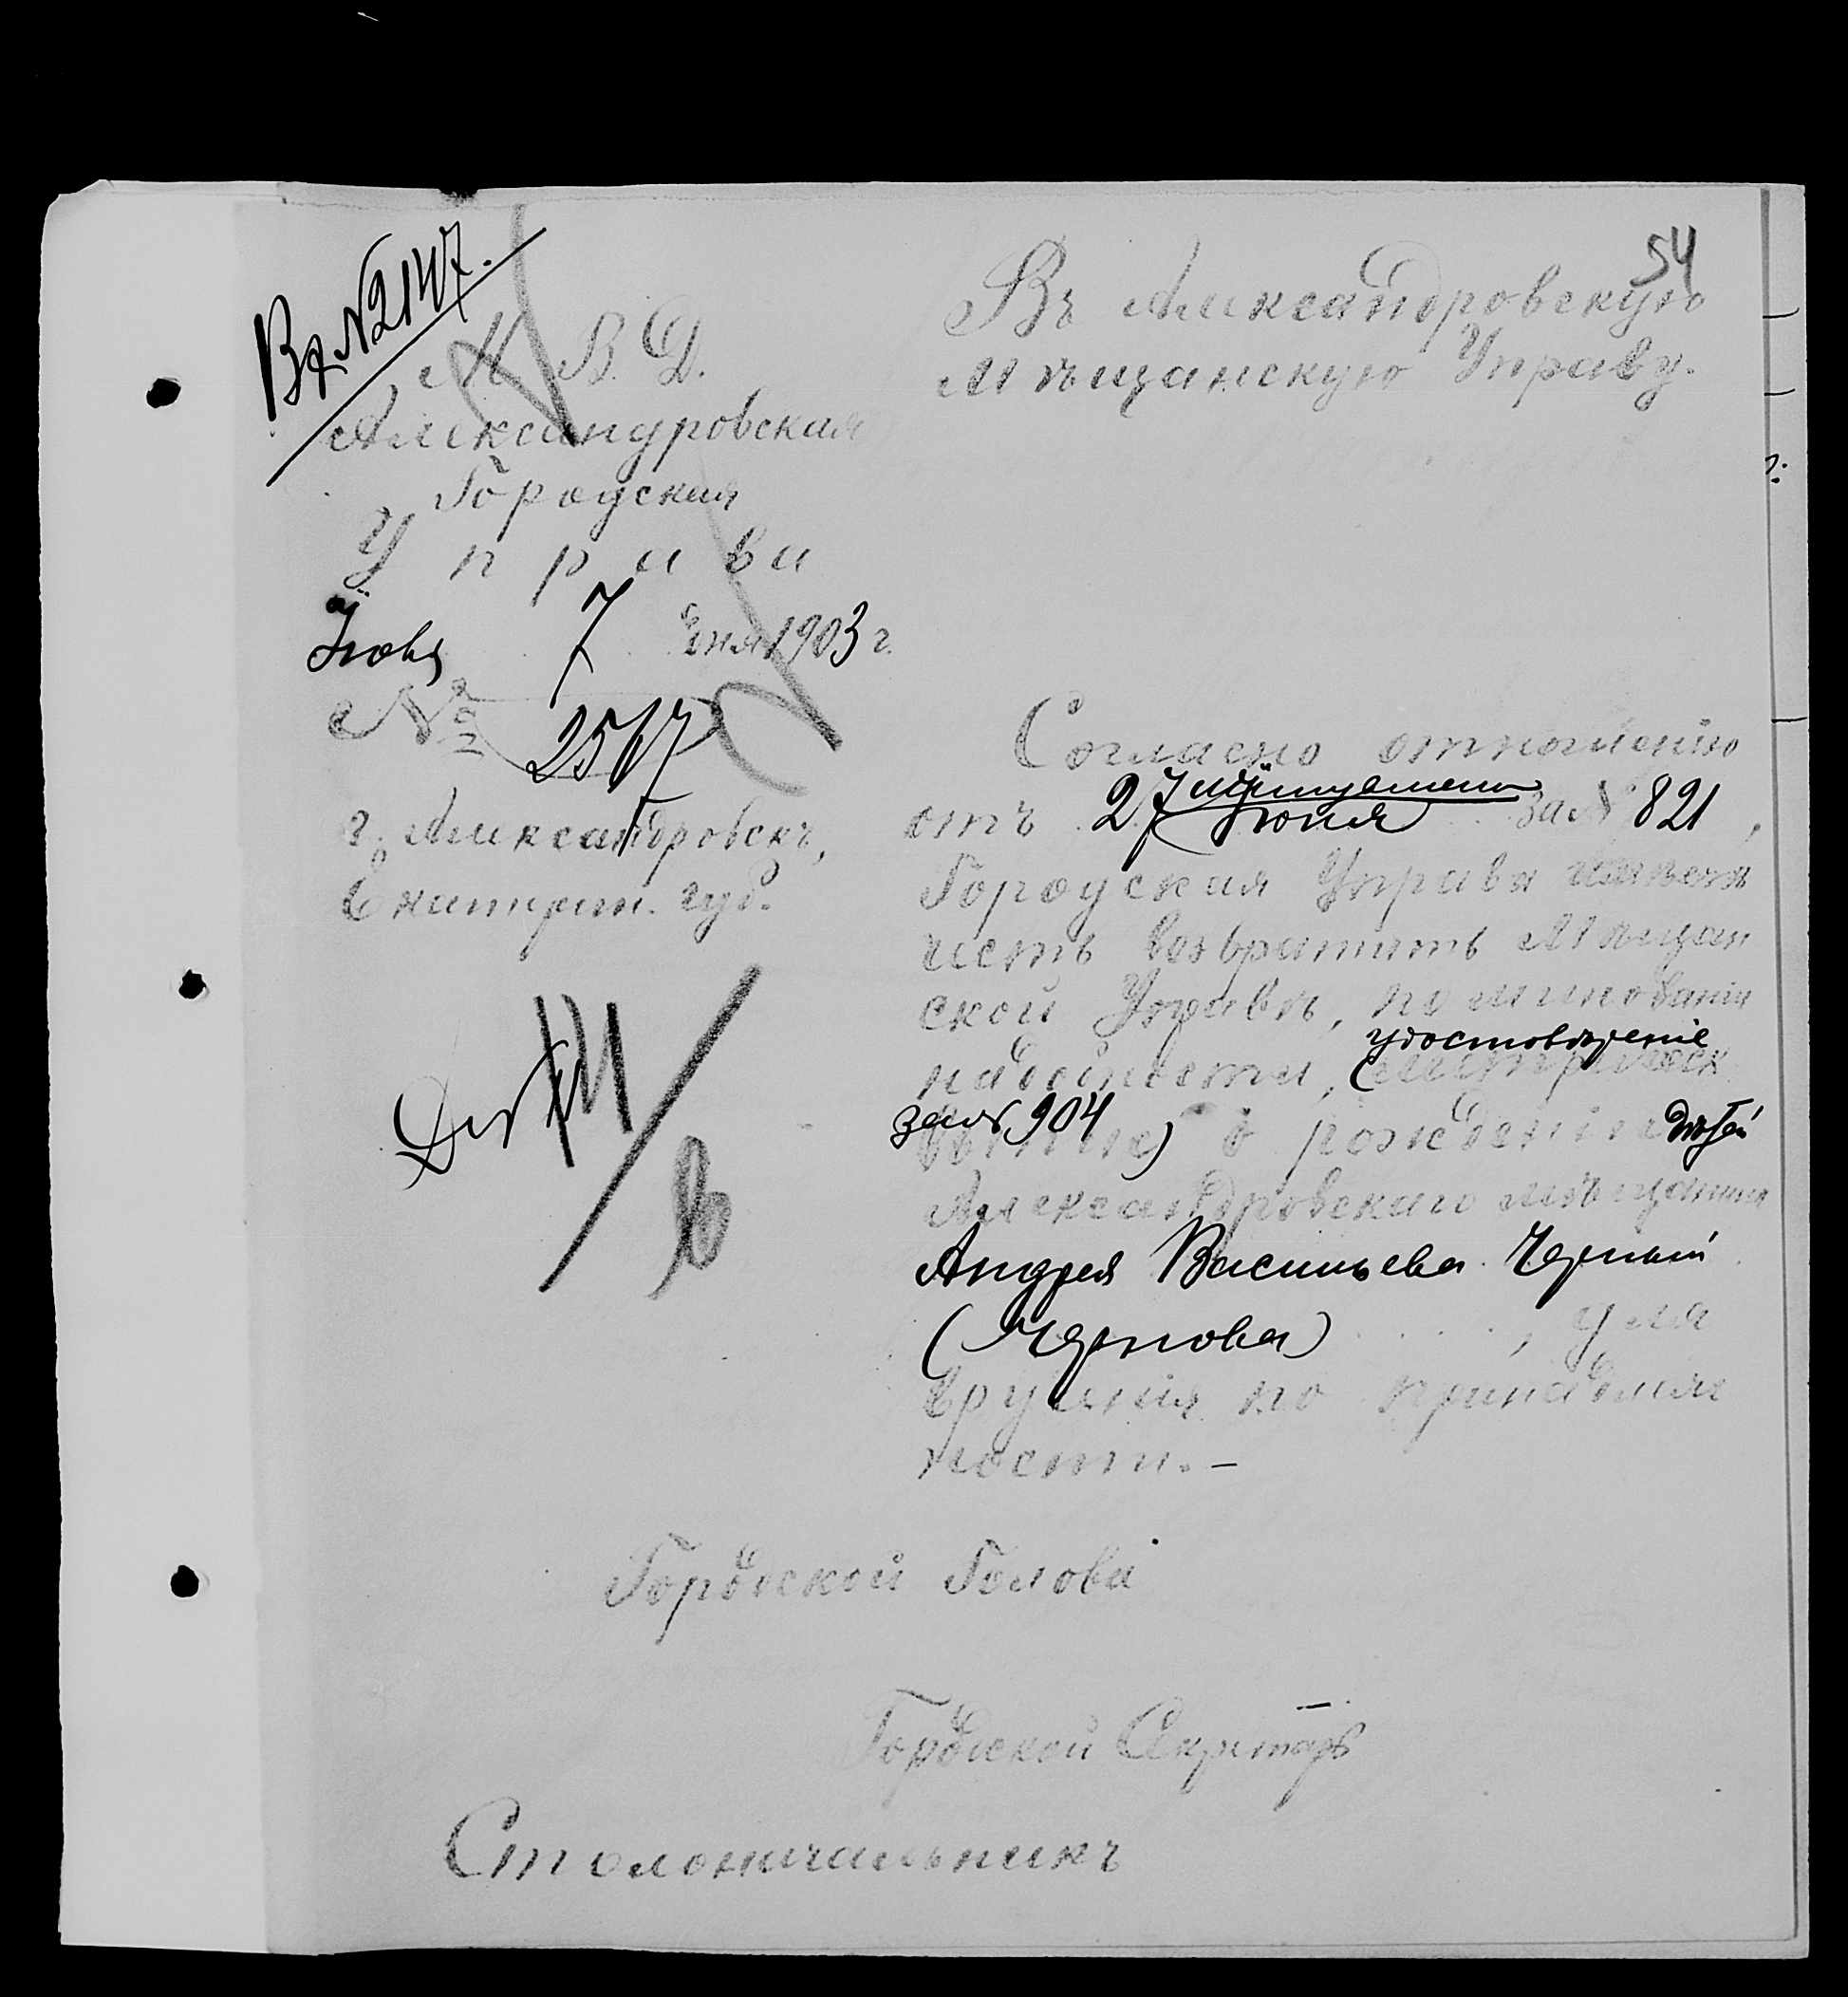 54
Вх №2147.
М. В. Д.
Александровская
Городская
Управа
7 дня 1903 г.
№ 2567
г. Александровскъ,
Екатерин. губ.
Въ Александровскую
Мѣщанскую Управу.
Согласно отношенію
отъ 27 Іюня за № 821,
Городская Управа имѣетъ
честь возвратить Мѣщан
ской Управѣ, по минованіи
удостовѣреніе
надобности, (метрическ
за № 904
) о рожденіи дѣтей
Александровскаго мѣщанина
Андрея Васильева Черный
(Чернова) , для
врученія по принадлеж
ности.-
Городской Голова
Городской Секретарь
Столоначальникъ